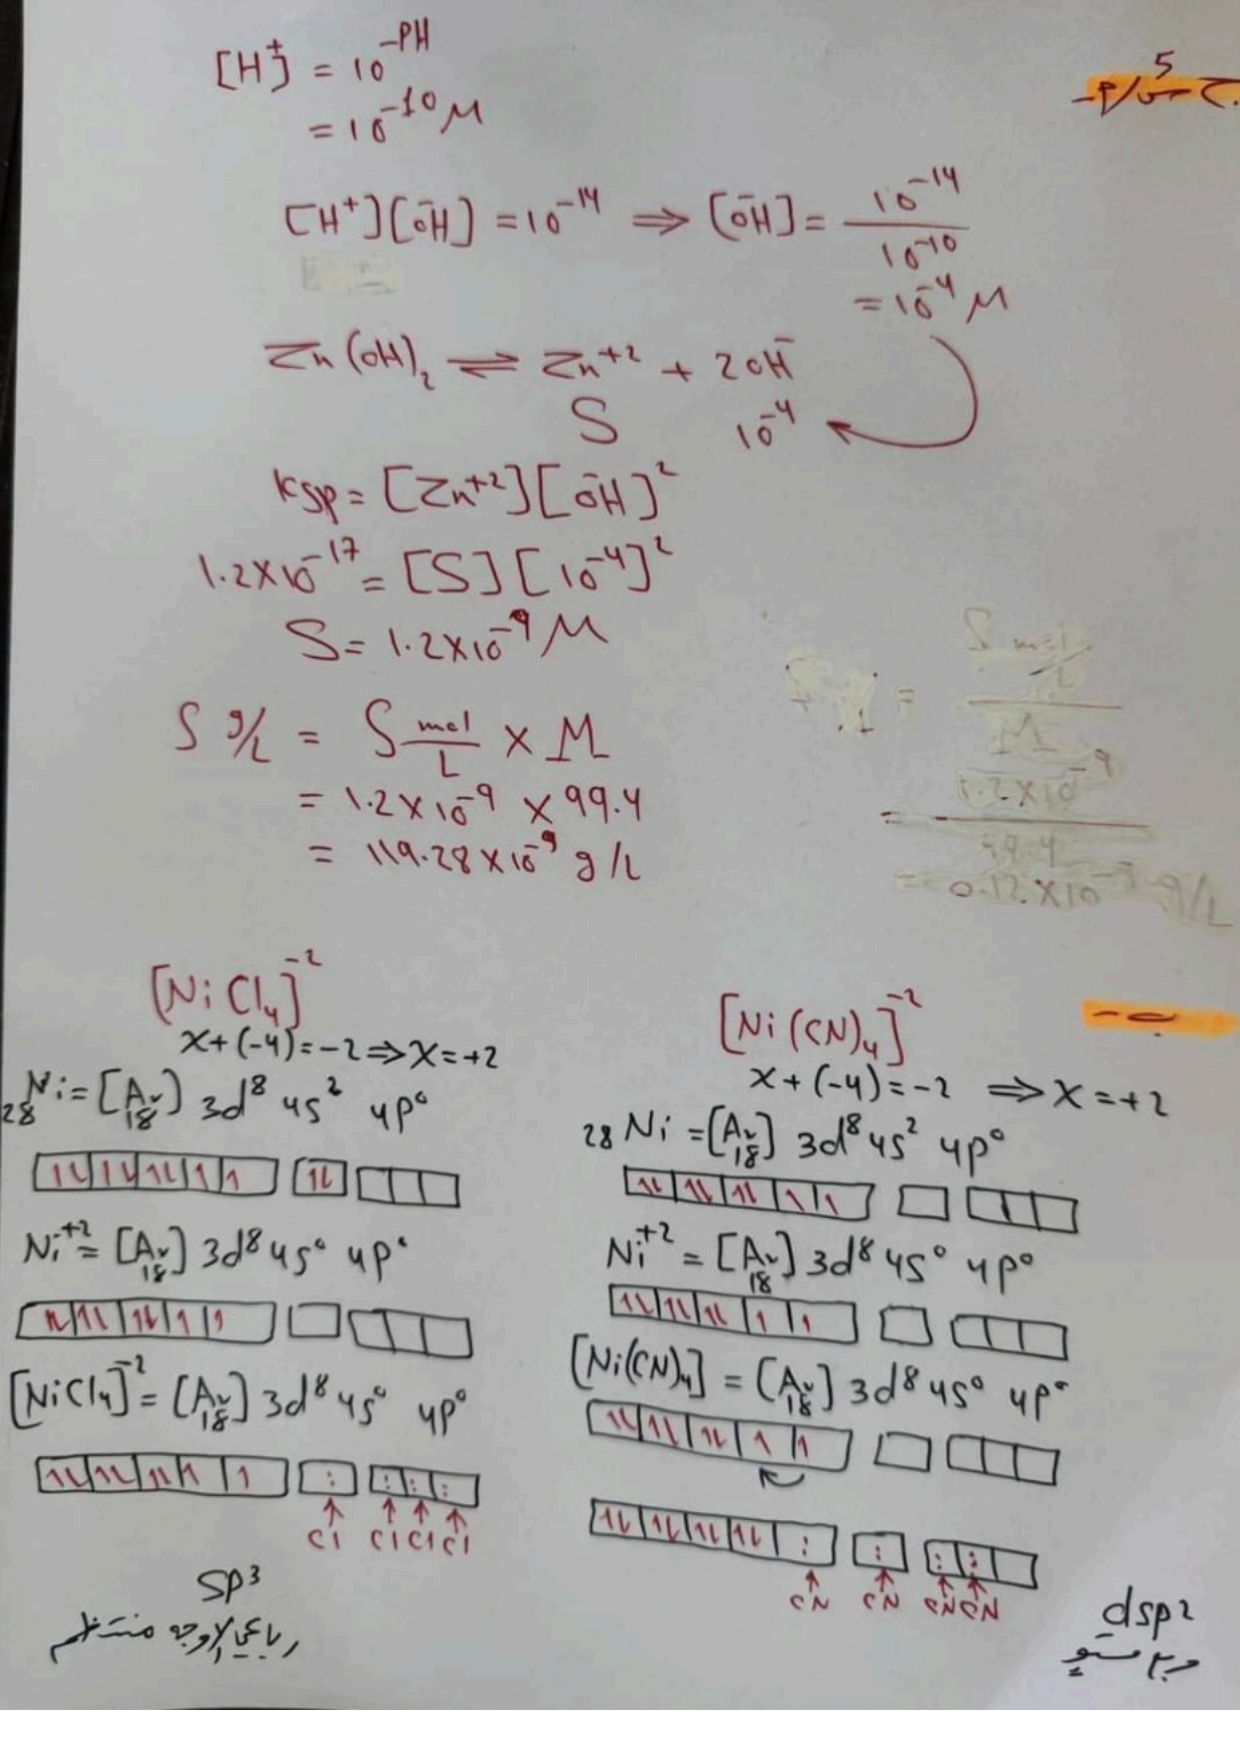 [H⁺] = 10^-PH
ج س5/P-
= 10^-10 M
[H⁺][OH⁻] = 10^-14 ⇒ [OH⁻] = 10^-14 / 10^-10
= 10^-4 M
Zn(OH)₂ ⇌ Zn⁺² + 2OH⁻
S 10^-4
Ksp = [Zn⁺²][OH⁻]²
1.2×10^-17 = [S][10^-4]²
S = 1.2×10^-9 M
S g/L = S mol/L × M
= 1.2×10^-9 × 99.4
= 119.28×10^-9 g/L
S mol/L
M
= 1.2×10^-9
99.4
= 0.12×10
[NiCl₄]^-2
x+(-4)=-2⇒x=+2
28Ni=[Ar]18 3d⁸ 4s² 4p⁰
Ni⁺²=[Ar]18 3d⁸ 4s⁰ 4p⁰
[NiCl₄]^-2=[Ar]18 3d⁸ 4s⁰ 4p⁰
Cl Cl Cl Cl
sp³
رباعي الاوجه منتظم
ب-
[Ni(CN)₄]^-2
x+(-4)=-2 ⇒x=+2
28Ni=[Ar]18 3d⁸ 4s² 4p⁰
Ni⁺²=[Ar]18 3d⁸ 4s⁰ 4p⁰
[Ni(CN)₄]=[Ar]18 3d⁸ 4s⁰ 4p⁰
CN CN CN CN
dsp²
مربع مستوي